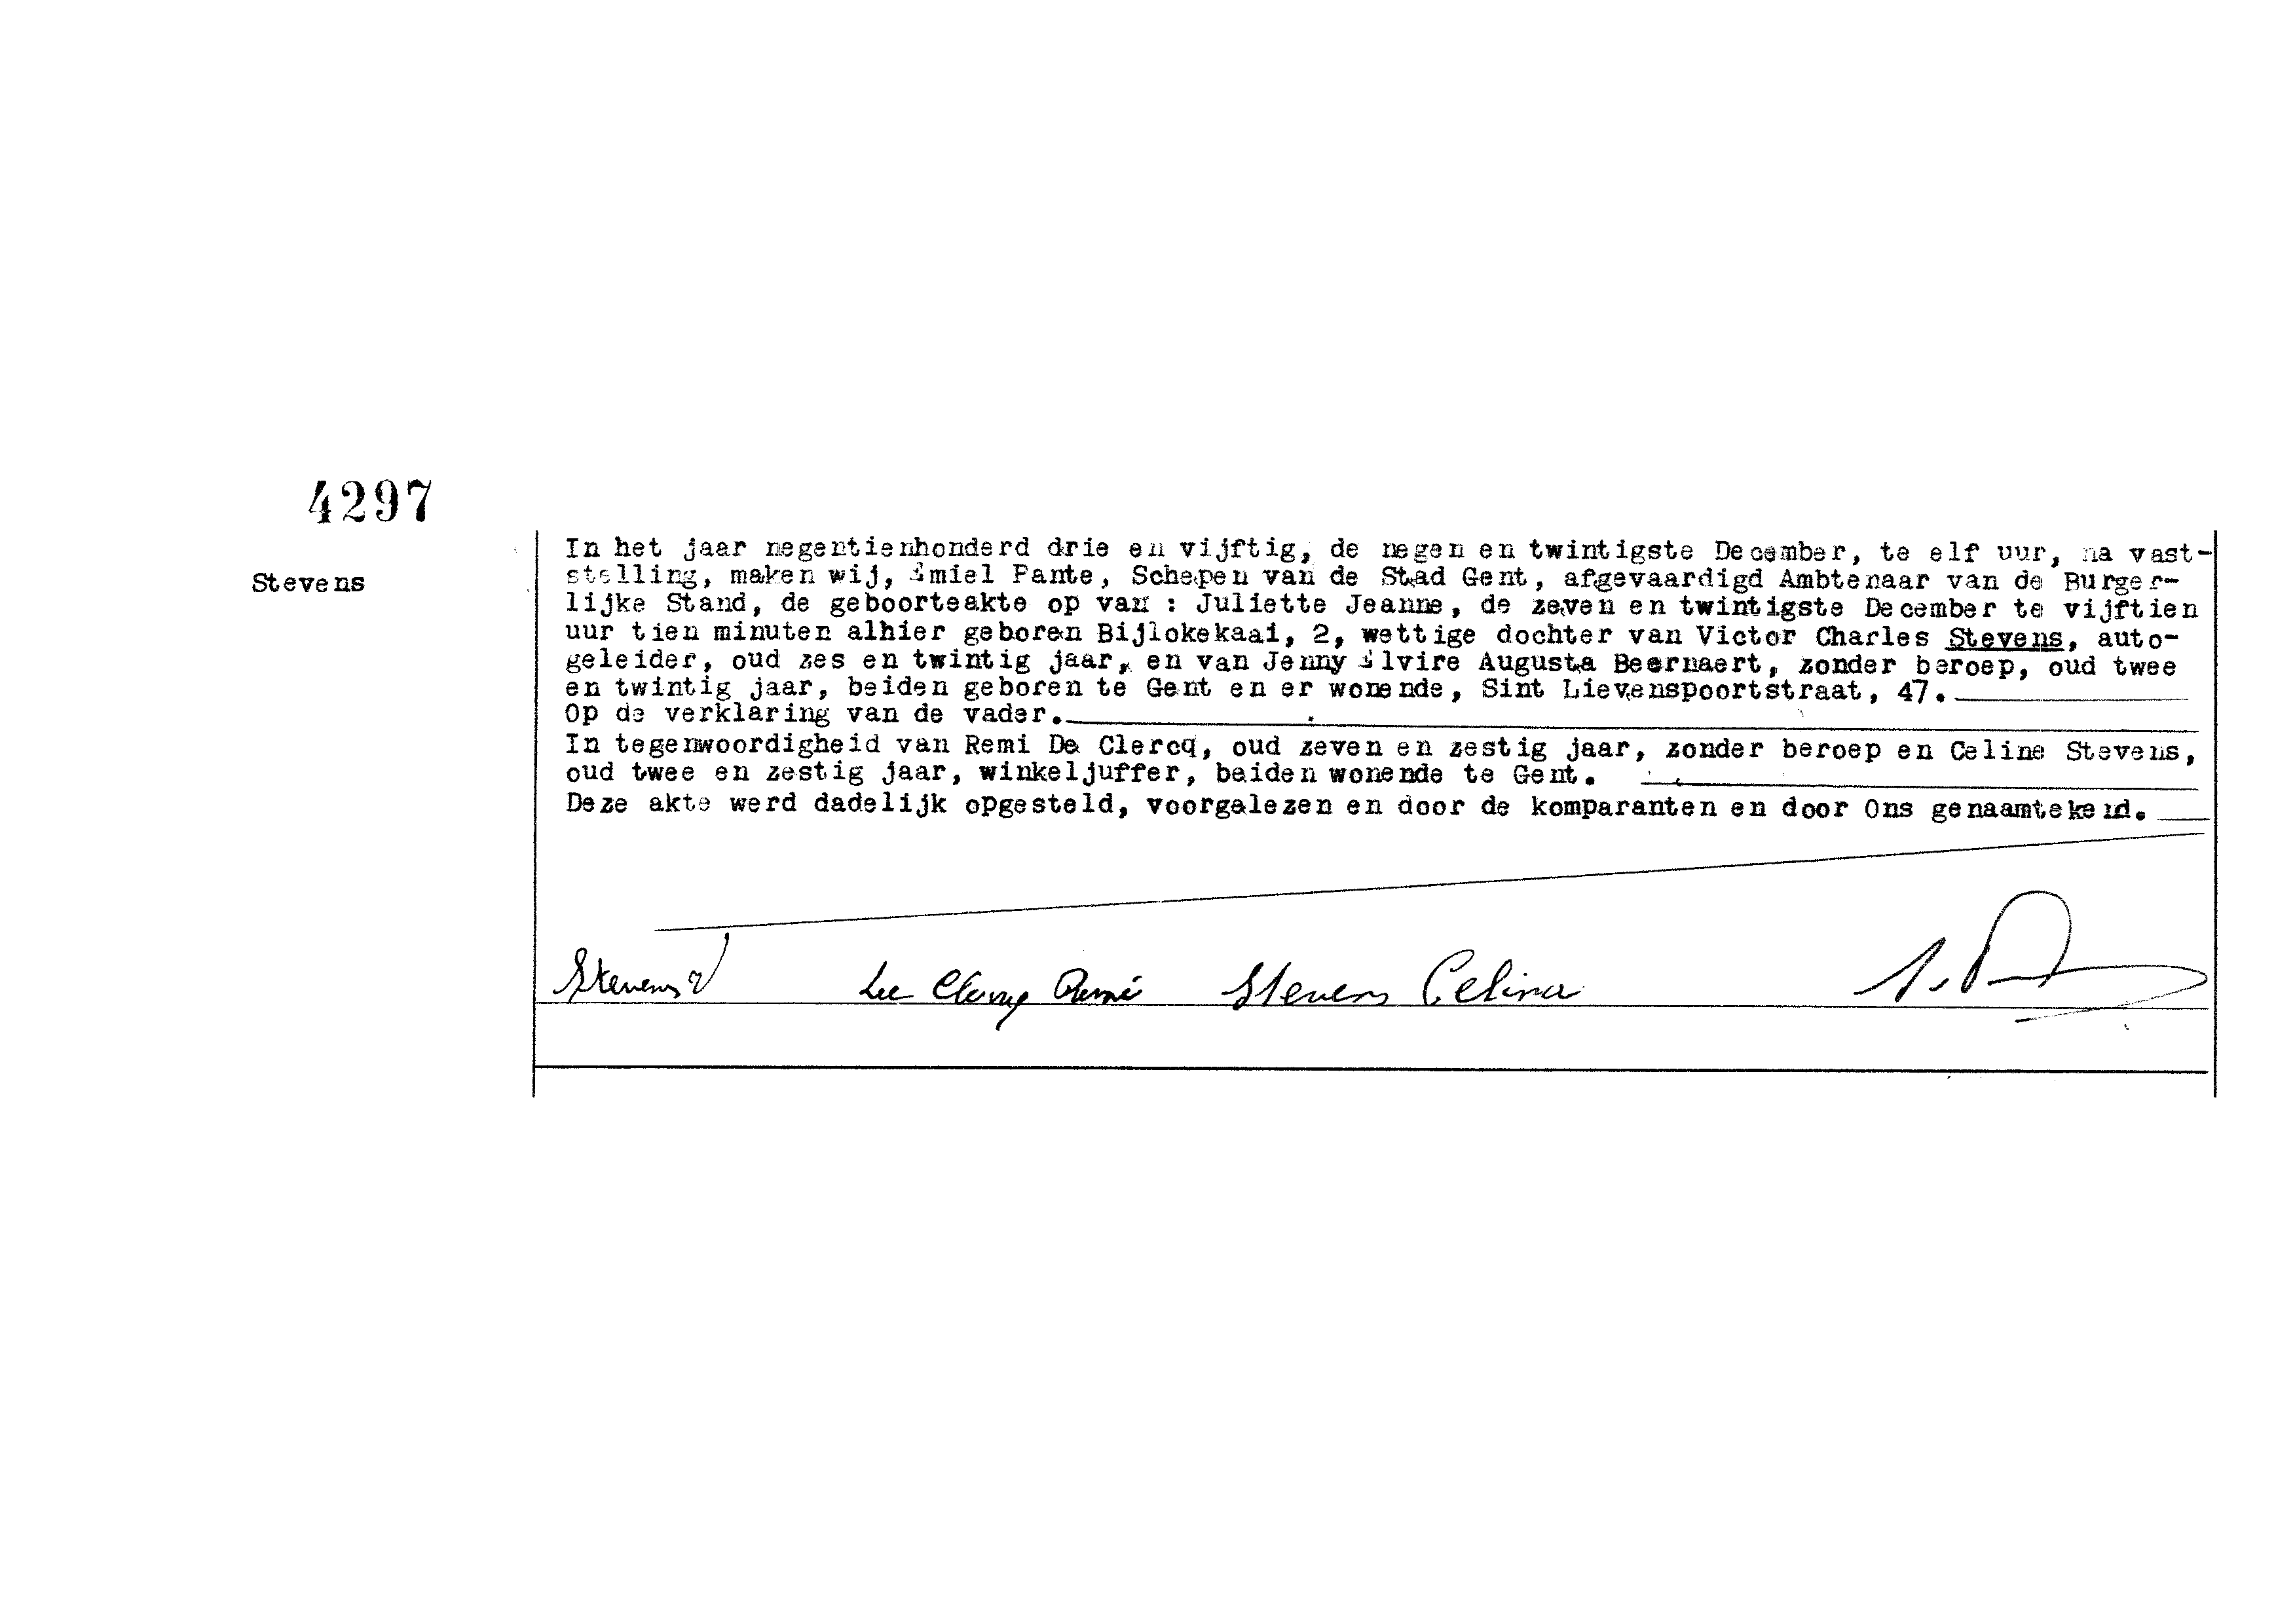 4297
Stevens
In het jaar negentienhonderd drie en vijftig, de negen en twintigste December, te elf uur, na vast-
stelling, maken wij, Emiel Pante, Schepen van de Stad Gent, afgevaardigd Ambtenaar van de Burger-
lijke Stand, de geboorteakte op van : Juliette Jeanne, de zeven en twintigste December te vijftien
uur tien minuten alhier geboren Bijlokekaai, 2, wettige dochter van Victor Charles Stevens, auto-
geleider, oud zes en twintig jaar, en van Jenny Elvire Augusta Beernaert, zonder beroep, oud twee
en twintig jaar, beiden geboren te Gent en er wonende, Sint Lievenspoortstraat, 47.
Op de verklaring van de vader.
In tegenwoordigheid van Remi De Clercq, oud zeven en zestig jaar, zonder beroep en Celine Stevens,
oud twee en zestig jaar, winkeljuffer, beiden wonende te Gent.
Deze akte werd dadelijk opgesteld, voorgelezen en door de komparanten en door Ons genaamtekend.
Stevens V De Clercq Remi Stevens Celina